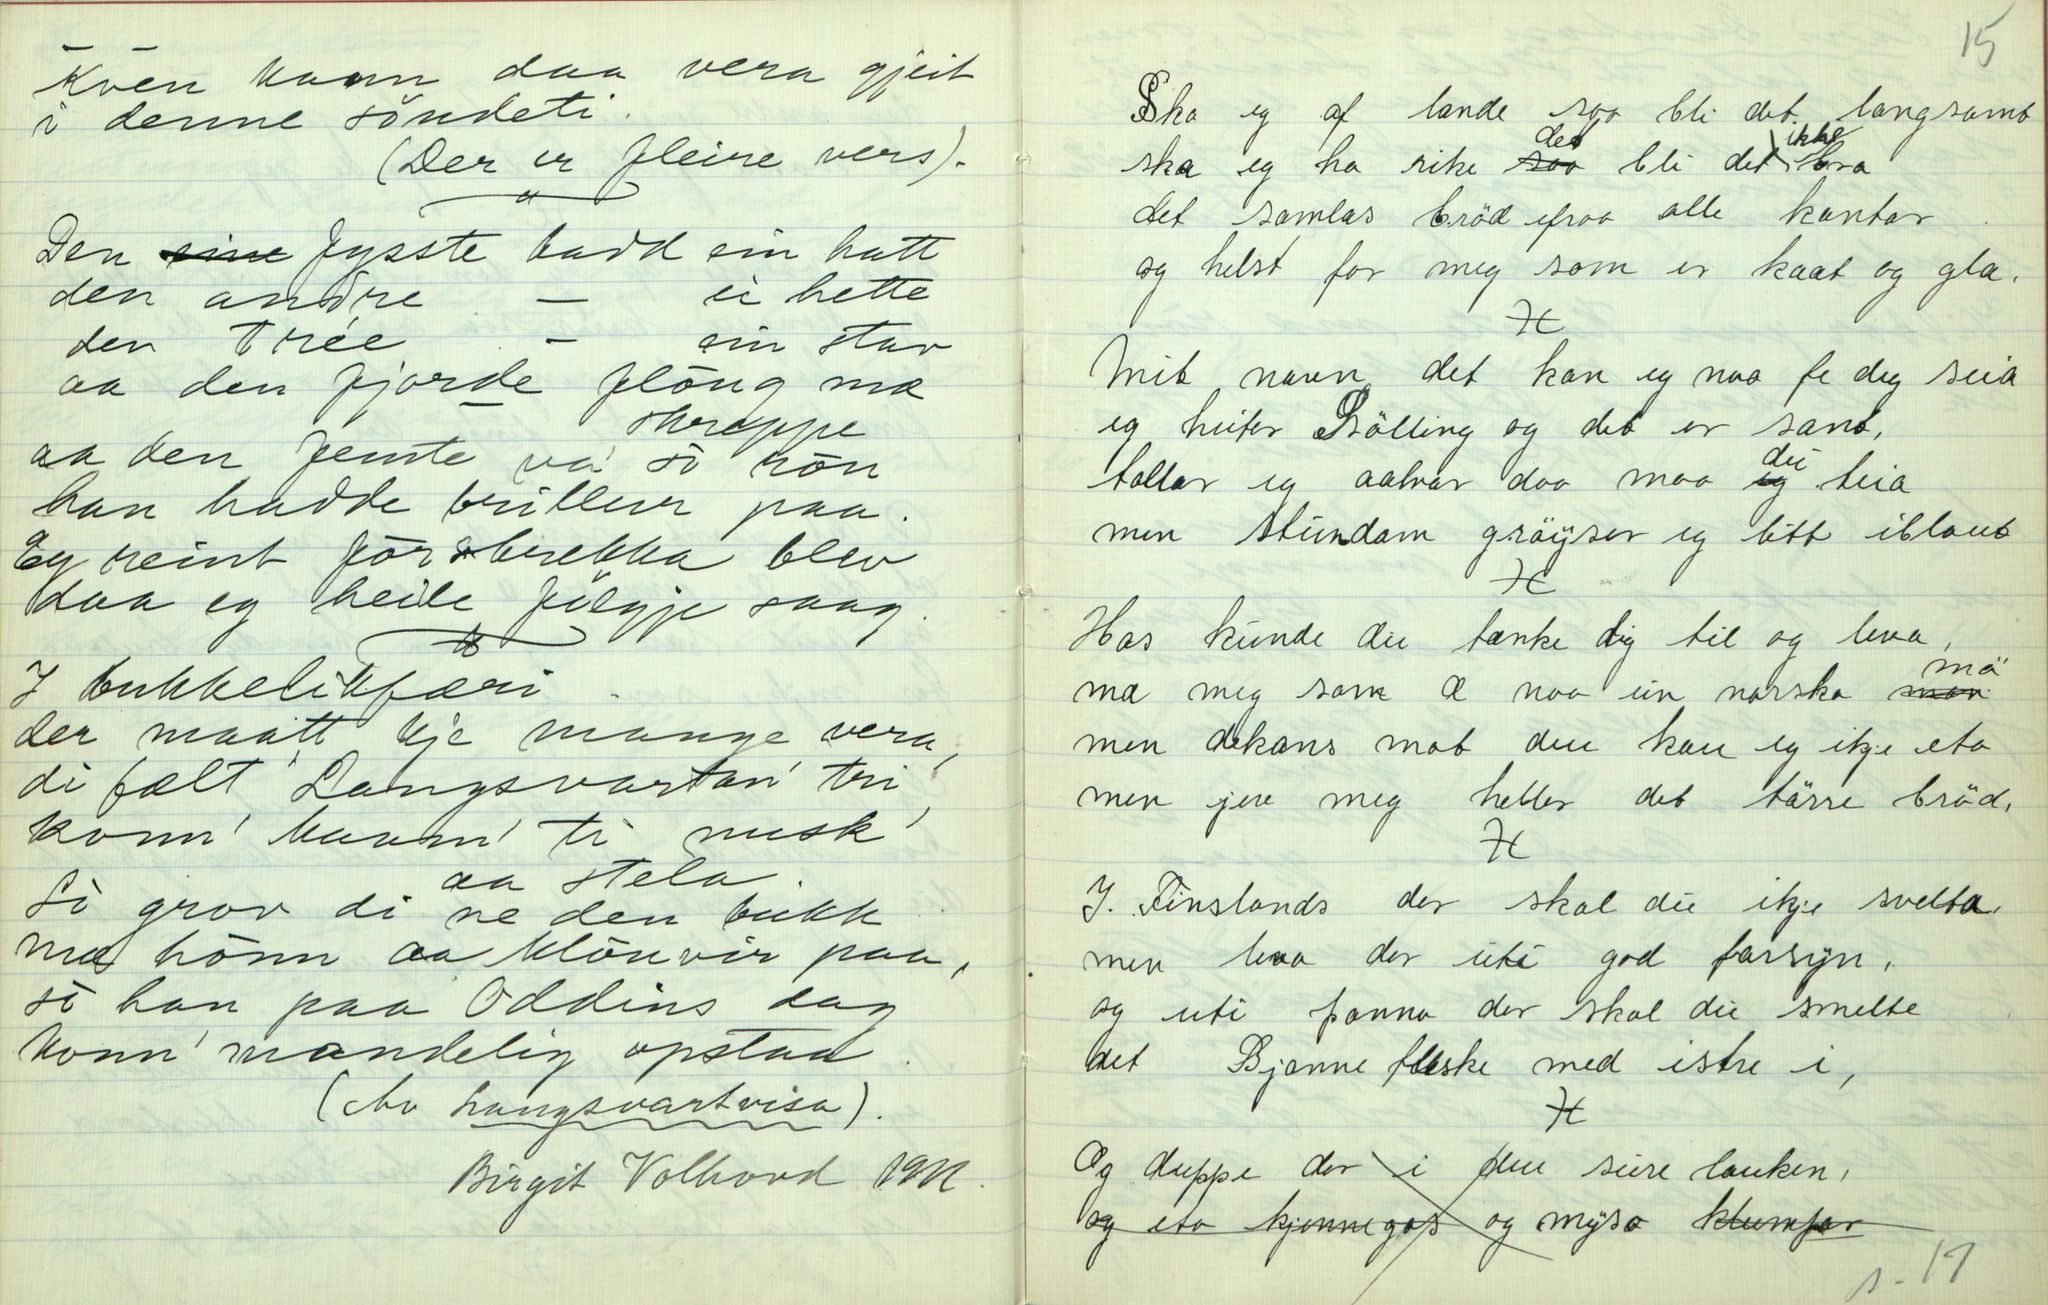 Kven kann daa vera gjeit
i denne söndeti.
(Der er fleire vers).
Den sine fysste hadd ein hatt
den andre — ei hette
den trée — ein stav
aa den fjorde flöug mæ
skreppe
aa den femte va' so rön
han hadde briller paa.
Eg reint förskrekka blev
daa eg heile fölgje saag.
I bukkelikfæri
der maatt kje mange vera,
di fælt Langsvartan' tri
konn' kaam' ti nusk'
aa stela
So grov di ne den bukk
mæ hönn aa klöuvir paa,
so han paa Oddins dag
konn' mandelig opstaa.
(Av Langsvartvisa).
Birgit Volhovd 1912.
15
Ska eg af lande saa bli det langsamt
ska eg ha rike saa det bli det ikke bra
det samlas bröd ifraa alle kantar
og helst for meg som er kaat og gla.
Mit navn det kan eg naa fe deg seia
eg heiter Brölling og det er sant,
tallar eg aalvar daa maa eg du teia
men stundom gröyser eg litt iblant
Has kunde du tænke dig til og leva,
mæ meg som æ naa ein norska man mö
men dekans mat den kan eg ikje eta
men jeve meg heller det törre bröd,
I. Finslands der skal du ikje svelta,
men leva der uti god forsyn,
og uti panna der skal du smelte
det Bjønne fleske med istre i,
Og duppe der i den sure lauken,
og eta kjonnegras og myso klumpar
s. 17